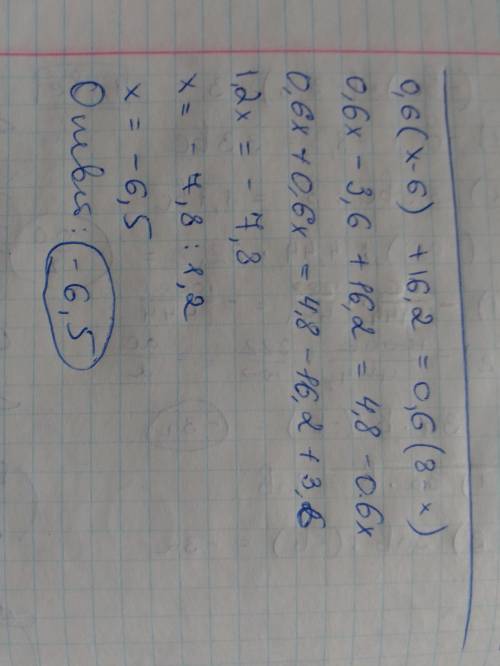 0,6(x-6) +16,2 = 0,6(8-x)
0,6x - 3,6 + 16,2 = 4,8 - 0.6x
0,6x + 0,6x = 4,8 - 16,2 + 3,6
1,2x = - 7,8
x = - 7,8 : 1,2
x = - 6,5
Ответ: -6,5